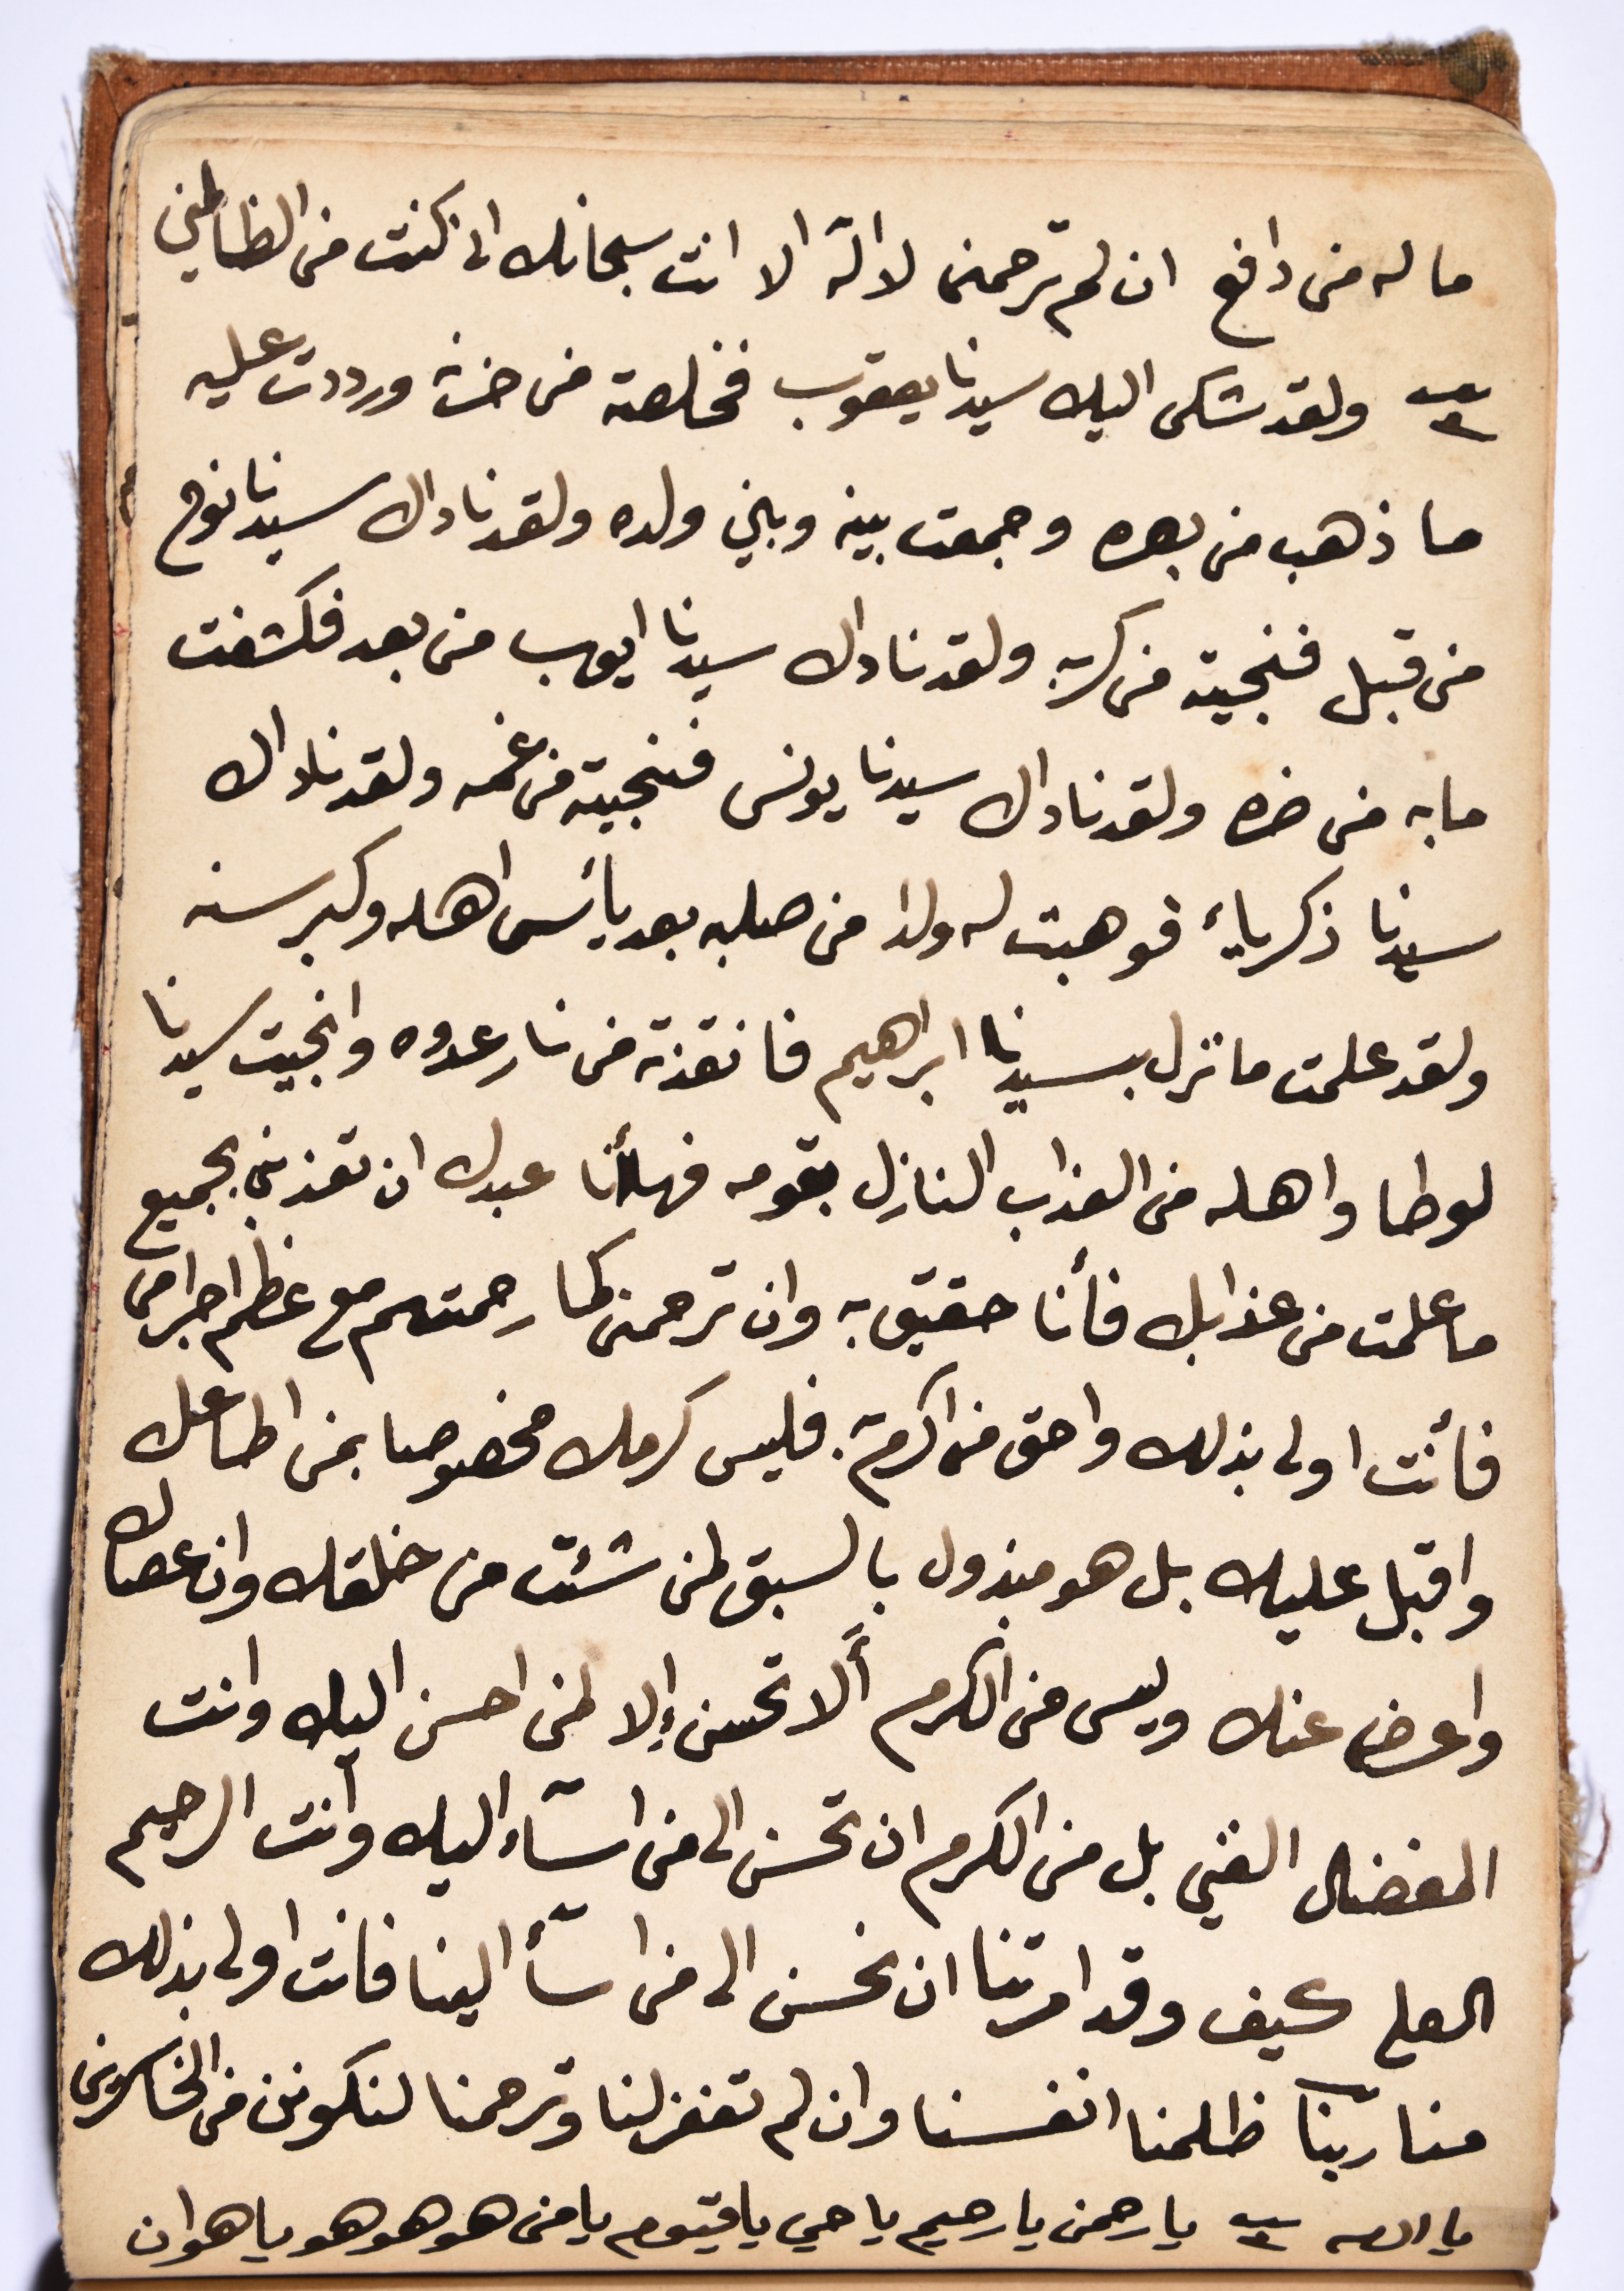 ما له من دافع ان لم ترحمنى لا اله الا انت سبحانك انى كنت من الظالمين
ولقد شكى اليك سيدنا يعقوب فخلصته من حزنه ورددت عليه
ما ذهب من بصره وجمعت بينه وبين ولده ولقد ناداك سيدنا نوح
من قبل فنجيته من كربه ولقد ناداك سيدنا ايوب من بعد فكشفت
ما به من ضره ولقد ناداك سيدنا يونس فنجيته من غمه ولقد ناداك
سيدنا ذكرياء فوهبت له ولدا من صلبه بعد يأس اهله وكبر سنه
ولقد علمت ما نزل بسيدنا ابراهيم فانقذته من نار عدوه وانجيت سيدنا
لوطا واهله من العذاب النازل بقومه فهأنا عبدك ان تعذبني بجميع
ما علمت من عذابك فأنا حقيق به وان ترحمنى كما رحمتهم مع عظم اجرامى
فأنت اولى بذلك واحق من اكرم به. فليس كرمك مخصوصا بمن اطاعك
واقبل عليك بل هو مبذول بالسبق لمن شئت من خلقك وان عصاك
واعرض عنك وليس من الكرم ألا تحسن إلا لمن احسن اليك وانت
المفضال الغني بل من الكرم ان تحسن الى من اسآء اليك وأنت الرحيم
العلي كيف وقد امرتنا ان نحسن الى من اسآ الينا فانت اولى بذلك
منا ربنا ظلمنا انفسنا وان لم تغفر لنا وترحمنا لنكونن من الخاسرين
يا الله يا رحمن يا رحيم يا حي يا قيوم يا من هو هو هو يا هو ان